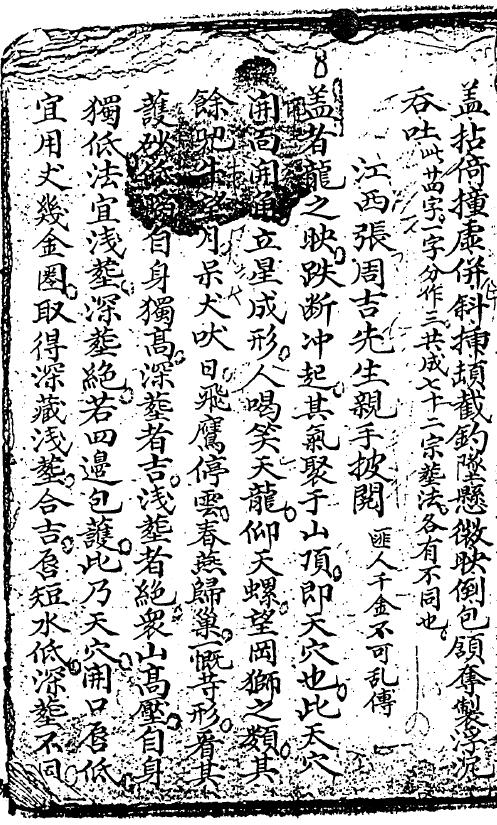 蓋拈倚撞虛併斜揷頭截釣墜懸徹映倒包領奪製浮
吞吐此廿四字一字分作三共成七十二宗塟法各有不同也
江西張周吉先生親手披閱匪人千金不可乱傳
盖者龍之映跌断冲起其氣聚于山頂即天穴也此天穴
開 開 立星成形人喝笑天龍仰天螺望岡獅之類其
餘 月呆犬吠日飛鷹停雲春燕歸巢一慨等形看其
護砂 自身獨高深塟者吉浅塟者絕衆山高壓自身
獨低法宜浅塟深塟絕若四邊包護此乃天穴開口唇低
宜用丈幾金圈取得深藏浅塟合吉唇短水低深塟不同